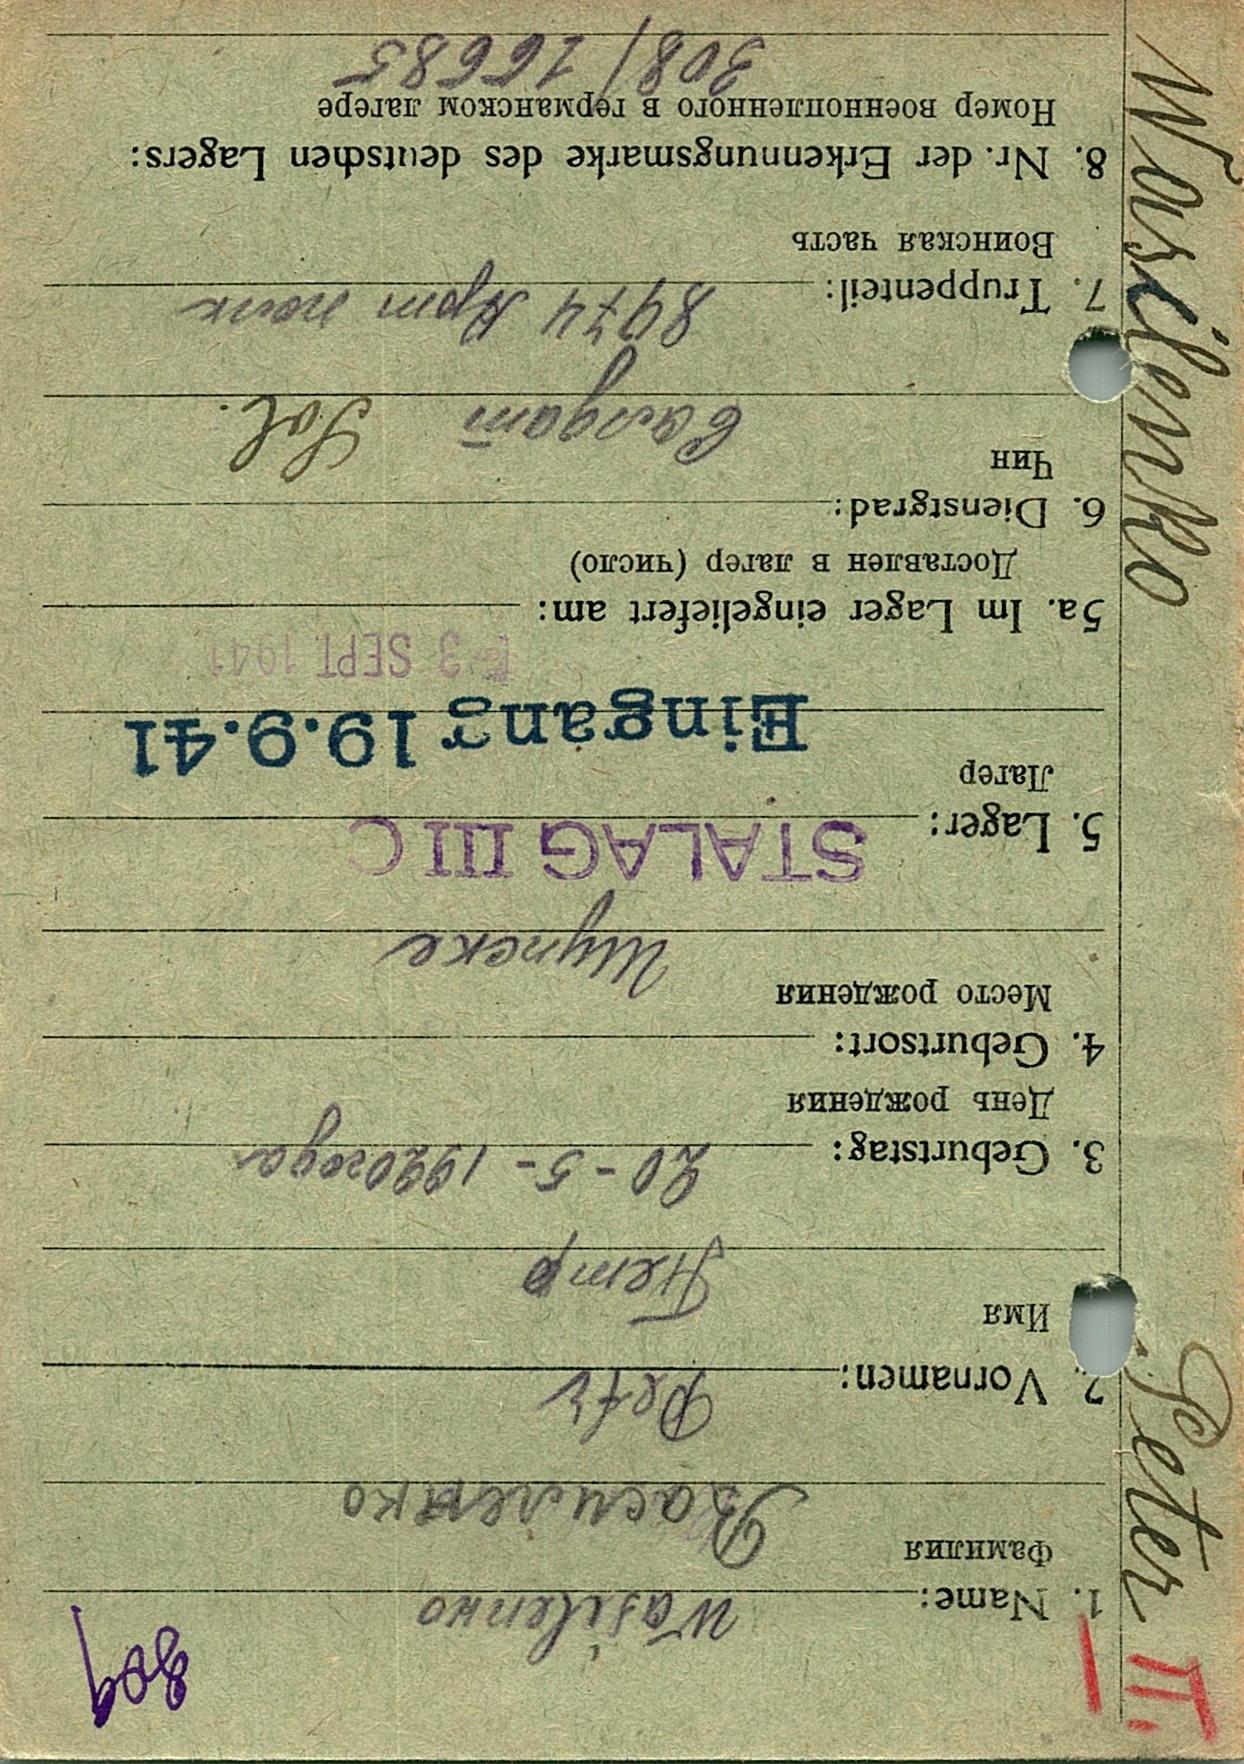 809
II.
I
Wasilenko
1. Name:
Фамилия
Василенко
Petr
2. Vornamen:
Имя
Петр
3. Geburtstag: 20-5-1920 года
День рождения
4. Geburtsort:
Место рождения
STALAG III C
5. Lager:
Лагер
Eingang 19.9.41
3 SEPT. 1941
5a. Im Lager eingeliefert am:
Доставлен в лагер (число)
6. Dienstgrad:
Чин
Солдат Sol.
7. Truppenteil: 8974 Арт полк
Воинская часть
8. Nr. der Erkennungsmarke des deutschen Lagers:
Номер военнопленного в германском лагере
308/16685
Wasilenko
Peter